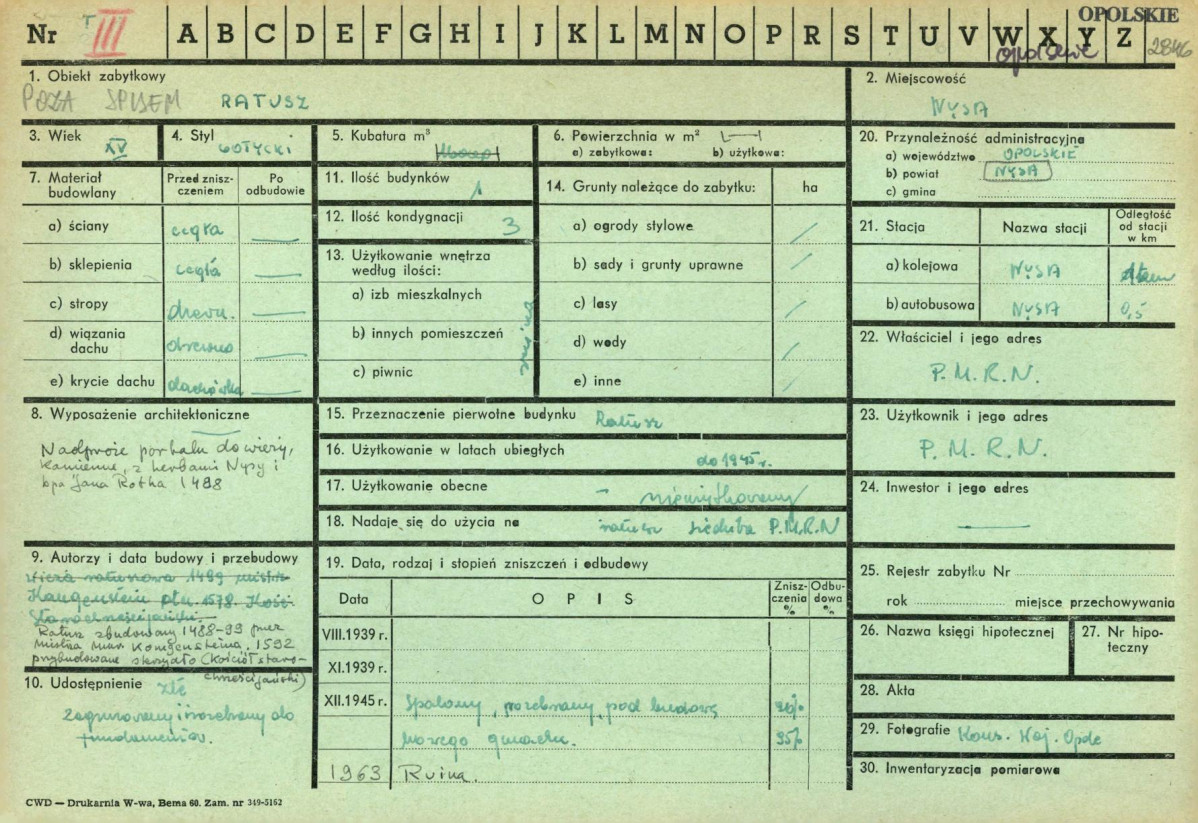 OPOLSKIE
Nr T III A B C D E F G H I J K L M N O P R S T U V W X Y Z 2846
opolskie
1. Obiekt zabytkowy
POZA SPISEM RATUSZ
2. Miejscowość
NYSA
3. Wiek
XV
4. Styl
GOTYCKI
5. Kubatura m³
6. Powierzchnia w m²
a) zabytkowa: b) użytkowa:
20. Przynależność administracyjna
a) województwo OPOLSKIE
b) powiat NYSA
c) gmina
7. Materiał budowlany
Przed zniszczeniem
Po odbudowie
a) ściany cegła
b) sklepienia cegła
c) stropy drewn.
d) wiązania dachu drewno
e) krycie dachu dachówka
11. Ilość budynków 1
12. Ilość kondygnacji 3
13. Użytkowanie wnętrza według ilości:
a) izb mieszkalnych
b) innych pomieszczeń
c) piwnic
14. Grunty należące do zabytku: ha
a) ogrody stylowe
b) sady i grunty uprawne
c) lasy
d) wody
e) inne
21. Stacja Nazwa stacji Odległość od stacji w km
a) kolejowa NYSA
b) autobusowa NYSA 0,5
22. Właściciel i jego adres
P.M.R.N.
8. Wyposażenie architektoniczne
Nadproże portalu do wieży,
kamienne, z herbami Nysy i
bpa Jana Rotha 1488
15. Przeznaczenie pierwotne budynku Ratusz
16. Użytkowanie w latach ubiegłych do 1945 r.
17. Użytkowanie obecne – nieużytkowany
18. Nadaje się do użycia na ratusz siedziba P.M.R.N
23. Użytkownik i jego adres
P.M.R.N.
24. Inwestor i jego adres
9. Autorzy i data budowy i przebudowy
wieża ratuszowa 1489 mistrz
Ratusz zbudowany 1488-99 przez
mistrza mur. Konigensteina, 1592
przybudowane skrzydło (kościół staro-
chrześcijański)
10. Udostępnienie złe
zagruzowany i rozebrany do
fundamentów.
19. Data, rodzaj i stopień zniszczeń i odbudowy
Data OPIS Zniszczenia % Odbudowa %
VIII.1939 r.
XI.1939 r.
XII.1945 r. Spalony, rozebrany, pod budowę
nowego gmachu. 95%
1963 Ruina.
25. Rejestr zabytku Nr
rok miejsce przechowywania
26. Nazwa księgi hipotecznej
27. Nr hipoteczny
28. Akta
29. Fotografie Kons. Woj. Opole
30. Inwentaryzacja pomiarowa
CWD — Drukarnia W-wa, Bema 60. Zam. nr 349-5162